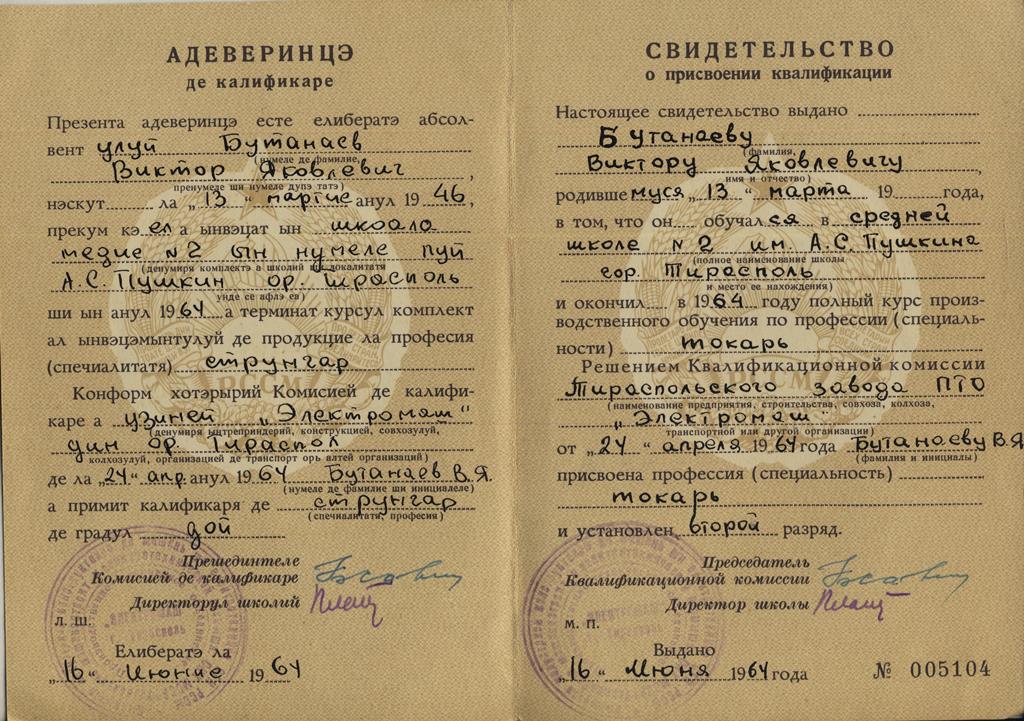 АДЕВЕРИНЦЭ
де калификаре
Презента адеверинцэ есте елибератэ абсол-
вент улуй Бутанаев
(нумеле де фамилие,
Виктор Яковлевич,
пренумеле ши нумеле дупэ татэ)
нэскут ла „13“ мартие анул 1946,
прекум кэ ел а ынвэцат ын шкоала
медие №2 ын нумеле луй
(денумиря комплектэ а школий ши локалитатя
А.С. Пушкин ор. Тирасполь
унде се афлэ еа)
ши ын анул 1964 а терминат курсул комплект
ал ынвэцэмынтулуй де продукцие ла професия
(спечиалитатя) струнгар
Конформ хотэрырий Комисией де калифи-
каре а узиней „Электромаш“
(денумиря ынтреприндерий, конструкцией, совхозулуй,
дин ор. Тираспол
колхозулуй, организацией де транспорт орь алтей организаций)
де ла „24“ апр. анул 1964 Бутанаев В.Я.
(нумеле де фамилие ши инициалеле)
а примит калификаря де струнгар
(спечиалитатя, професия)
де градул дой
Прешединтеле
Комисией де калификаре
Директорул школий
Л. Ш.
Елибератэ ла
„16“ Июние 1964
СВИДЕТЕЛЬСТВО
о присвоении квалификации
Настоящее свидетельство выдано
Бутанаеву
(фамилия,
Виктору Яковлевичу
имя и отчество)
родившемуся „13“ марта 19 года,
в том, что он обучался в средней
школе №2 им. А.С. Пушкина
(полное наименование школы
гор. Тирасполь
и место ее нахождения)
и окончил в 1964 году полный курс произ-
водственного обучения по профессии (специаль-
ности) токарь
Решением Квалификационной комиссии
Тираспольского завода ПТО
(наименование предприятия, строительства, совхоза, колхоза,
„Электромаш“
транспортной или другой организации)
от „24“ апреля 1964 года Бутанаеву В.Я
(фамилия и инициалы)
присвоена профессия (специальность)
токарь
и установлен второй разряд.
Председатель
Квалификационной комиссии
Директор школы
М. П.
Выдано
„16“ Июня 1964 года
№ 005104